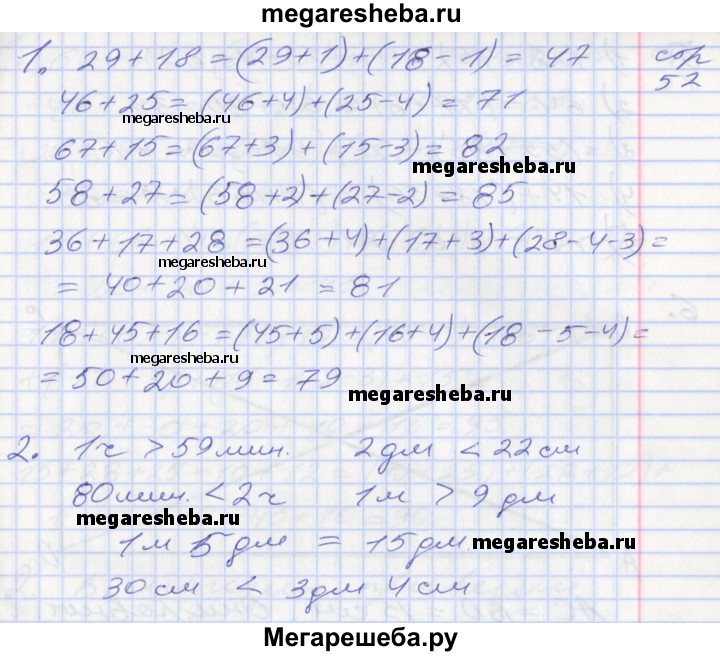 megaresheba.ru
1. 29+18=(29+1)+(18-1)=47 стр
52
46+25=(46+4)+(25-4)=71
megaresheba.ru
67+15=(67+3)+(15-3)=82
megaresheba.ru
58+27=(58+2)+(27-2)=85
36+17+28=(36+4)+(17+3)+(28-4-3)=
megaresheba.ru
= 40+20+21 = 81
18+45+16=(45+5)+(16+4)+(18-5-4)=
megaresheba.ru
=50+20+9=79
megaresheba.ru
2. 1ч > 59мин. 2дм < 22см
80мин. < 2ч 1м > 9 дм
megaresheba.ru
1м 5дм = 15дм
megaresheba.ru
30см < 3дм 4см
Мегарешеба.ру